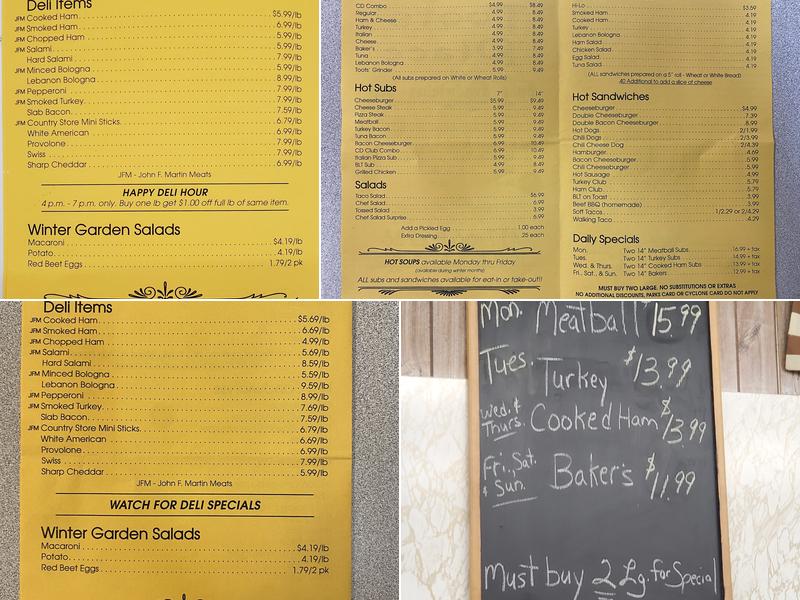 Deli Items
JFM Cooked Ham $5.99/lb
JFM Smoked Ham 6.99/lb
JFM Chopped Ham 5.99/lb
JFM Salami 5.99/lb
Hard Salami 7.99/lb
JFM Minced Bologna 5.99/lb
Lebanon Bologna 8.99/lb
JFM Pepperoni 7.99/lb
JFM Smoked Turkey 7.99/lb
Slab Bacon 7.59/lb
JFM Country Store Mini Sticks 6.79/lb
White American 6.99/lb
Provolone 7.99/lb
Swiss 7.99/lb
Sharp Cheddar 6.99/lb
JFM - John F. Martin Meats
HAPPY DELI HOUR
4 p.m. - 7 p.m. only. Buy one lb get $1.00 off full lb of same item.
Winter Garden Salads
Macaroni $4.19/lb
Potato 4.19/lb
Red Beet Eggs 1.79/2 pk
CD Combo $4.99 $8.49
Regular 4.99 8.49
Ham & Cheese 4.99 8.49
Turkey 4.99 8.49
Italian 4.99 8.49
Cheese 4.99 8.49
Baker's 3.99 7.49
Tuna 4.99 8.49
Lebanon Bologna 4.99 8.49
Toots' Grinder 5.99 9.49
(All subs prepared on White or Wheat Rolls)
Hot Subs
7" 14"
Cheeseburger $5.99 $9.49
Cheese Steak 5.99 9.49
Pizza Steak 5.99 9.49
Meatball 5.99 9.49
Turkey Bacon 5.99 9.49
Tuna Bacon 5.99 9.49
Bacon Cheeseburger 6.99 10.49
CD Club Combo 6.99 10.49
Italian Pizza Sub 5.99 9.49
BLT Sub 4.99 8.49
Grilled Chicken 5.99 9.49
Salads
Taco Salad $6.99
Chef Salad 6.99
Tossed Salad 3.99
Chef Salad Surprise 6.99
Add a Pickled Egg 1.00 each
Extra Dressing .25 each
HOT SOUPS available Monday thru Friday
(available during winter months)
ALL subs and sandwiches available for eat-in or take-out!!
Hi-Lo $3.69
Smoked Ham 4.19
Cooked Ham 4.19
Turkey 4.19
Lebanon Bologna 4.19
Ham Salad 4.19
Chicken Salad 4.19
Egg Salad 4.19
Tuna Salad 4.19
(ALL sandwiches prepared on a 5" roll - Wheat or White Bread)
.40 Additional to add a slice of cheese
Hot Sandwiches
Cheeseburger $4.99
Double Cheeseburger 7.39
Double Bacon Cheeseburger 8.99
Hot Dogs 2/1.99
Chili Dogs 2/3.99
Chili Cheese Dog 2/4.39
Hamburger 4.69
Bacon Cheeseburger 5.99
Chili Cheeseburger 5.99
Hot Sausage 4.99
Turkey Club 5.79
Ham Club 5.79
BLT on Toast 3.99
Beef BBQ (homemade) 3.99
Soft Tacos 1/2.29 or 2/4.29
Walking Taco 4.29
Daily Specials
Mon. Two 14" Meatball Subs 16.99 + tax
Tues. Two 14" Turkey Subs 14.99 + tax
Wed. & Thurs. Two 14" Cooked Ham Subs 13.99 + tax
Fri., Sat., & Sun. Two 14" Bakers 12.99 + tax
MUST BUY TWO LARGE. NO SUBSTITUTIONS OR EXTRAS
NO ADDITIONAL DISCOUNTS, PARKS CARD OR CYCLONE CARD DO NOT APPLY
Deli Items
JFM Cooked Ham $5.69/lb
JFM Smoked Ham 6.69/lb
JFM Chopped Ham 4.99/lb
JFM Salami 5.69/lb
Hard Salami 8.59/lb
JFM Minced Bologna 5.59/lb
Lebanon Bologna 9.59/lb
JFM Pepperoni 8.99/lb
JFM Smoked Turkey 7.69/lb
Slab Bacon 7.59/lb
JFM Country Store Mini Sticks 6.79/lb
White American 6.69/lb
Provolone 6.99/lb
Swiss 7.99/lb
Sharp Cheddar 5.99/lb
JFM - John F. Martin Meats
WATCH FOR DELI SPECIALS
Winter Garden Salads
Macaroni $4.19/lb
Potato 4.19/lb
Red Beet Eggs 1.79/2 pk
Mon. Meatball 15.99
Tues. Turkey $13.99
Wed. & Thurs. Cooked Ham $13.99
Fri., Sat. & Sun. Baker's $11.99
Must buy 2 Lg. for Special